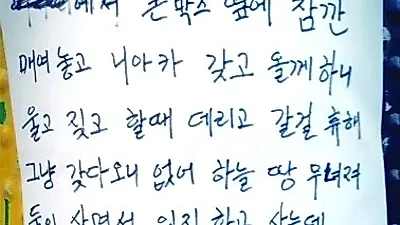 에서 폰박스 옆에 잠깐
매여놓고 니아카 갖고 올께하니
울고 짖고 할때 데리고 갈걸 휴해
그냥 갖다오니 없어 하늘 땅 무녀져
둘이 살면서 의지 하고 사는데